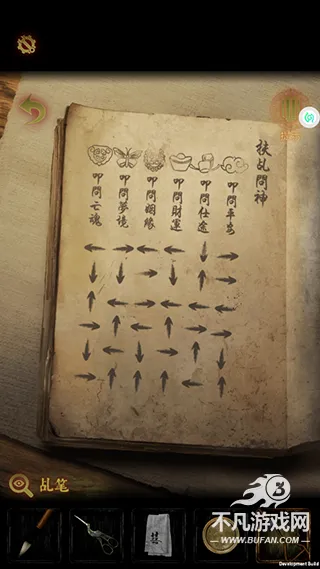 扶乩問神
叩問平安
叩問仕途
叩問財運
叩問姻緣
叩問夢境
叩問亡魂
乩笔
不凡游戏网
WWW.BUFAN.COM
Development Build